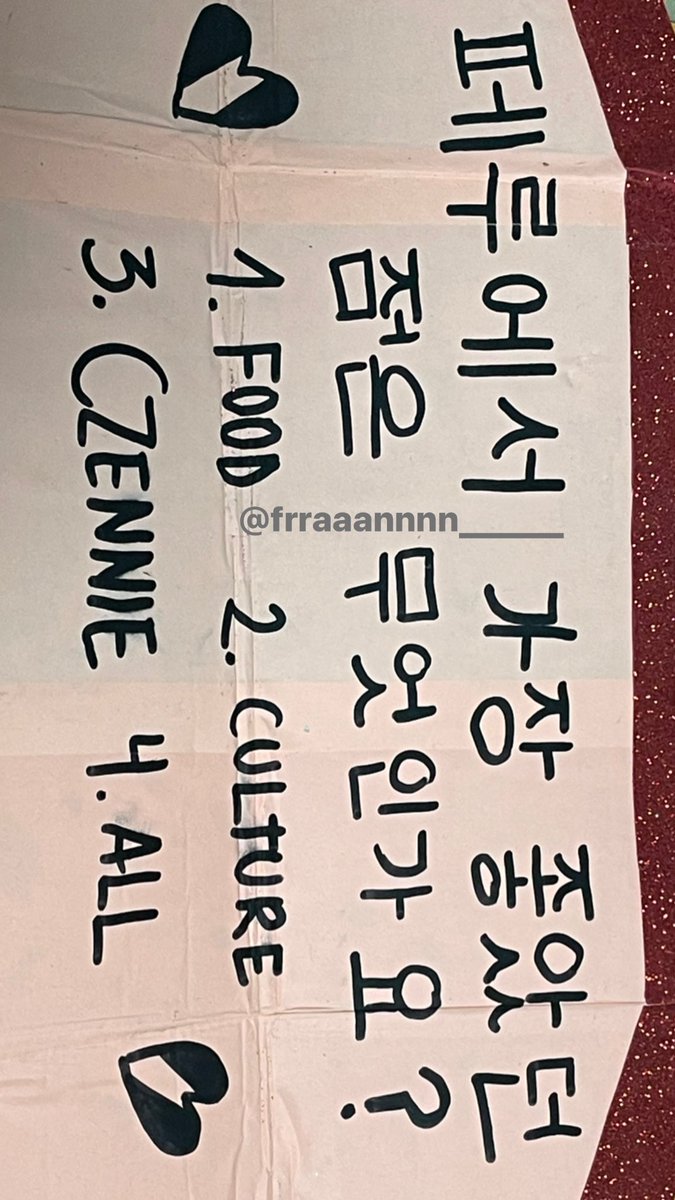 페루에서 가장 좋았던
점은 무엇인가요?
1. FOOD 2. CULTURE
3. CZENNIE 4. ALL
@frraaannnn______